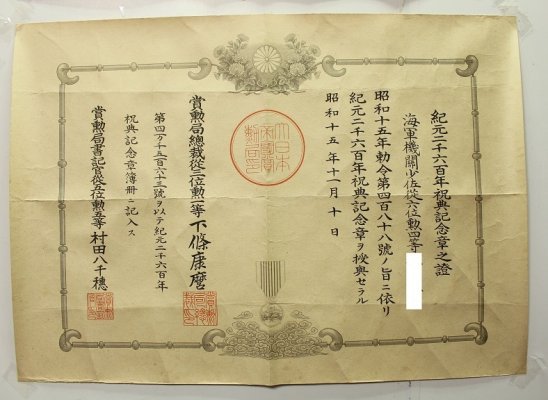 紀元二千六百年祝典記念章之證
海軍機關少佐從六位勲四等
昭和十五年勅令第四百八十八號ノ旨ニ依リ
紀元二千六百年祝典記念章ヲ授與セラル
昭和十五年十一月十日
賞勲局總裁從三位勲一等下條康麿
第四万千五百六十三號ヲ以テ紀元二千六百年
祝典記念章簿冊ニ記入ス
賞勲局書記官從五位勲五等村田八千穂